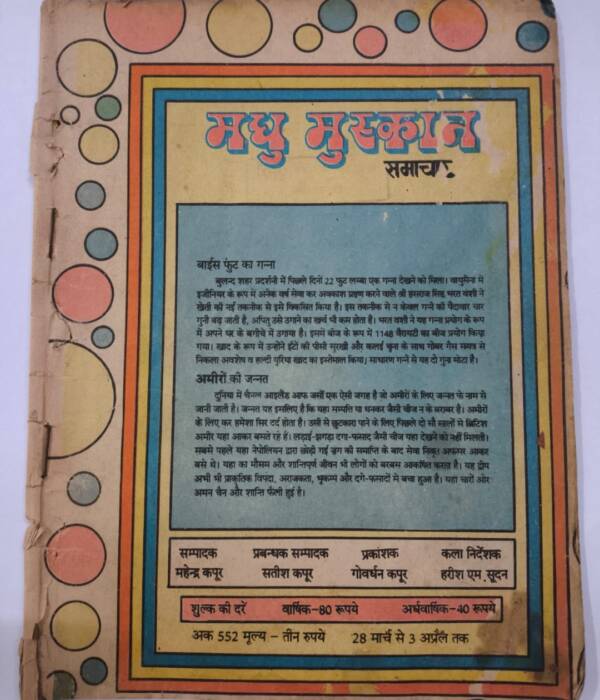 मधु मुस्कान
समाचार
बाईस फुट का गन्ना
बुलन्द शहर प्रदर्शनी में पिछले दिनों 22 फुट लम्बा एक गन्ना देखने को मिला। वायुसेना में
इंजीनियर के रूप में अनेक वर्ष सेवा कर अवकाश ग्रहण करने वाले श्री हंसराज सिंह भरत वंशी ने
खेती की नई तकनीक से इसे विकसित किया है। इस तकनीक से न केवल गन्ने की पैदावार चार
गुनी बढ़ जाती है, अपितु उसे उगाने का खर्च भी कम होता है। भरत वंशी ने यह गन्ना प्रयोग के रूप
में अपने घर के बगीचे में उगाया है। इसमें बीज के रूप में 1148 वैरायटी का बीज प्रयोग किया
गया। खाद के रूप में उन्होंने ईंटों की पीसी सुरखी और कलई चुना के साथ गोबर गैस सयंत्र से
निकला अवशेष व हल्दी यूरिया खाद का इस्तेमाल किया। साधारण गन्ने से यह दो गुना मोटा है।
अमीरों की जन्नत
दुनिया में चैनल आइलैंड आफ जर्सी एक ऐसी जगह है जो अमीरों के लिए जन्नत के नाम से
जानी जाती है। जन्नत यह इसलिए है कि यहा सम्पत्ति या धनकर जैसी चीज न के बराबर है। अमीरों
के लिए कर हमेशा सिर दर्द होता है। उसी से छुटकारा पाने के लिए पिछले दो सौ सालों से ब्रिटिश
अमीर यहा आकर बसते रहे हैं। लड़ाई-झगड़ा दंगा-फसाद जैसी चीज यहा देखने को नहीं मिलती।
सबसे पहले यहा नेपोलियन द्वारा छोड़ी गई जंग की समाप्ति के बाद सेवा निवृत अफसर आकर
बसे थे। यहा का मौसम और शान्तिपूर्ण जीवन भी लोगों को बरबस आकर्षित करता है। यह द्वीप
अभी भी प्राकृतिक विपदा, अराजकता, भूकम्प और दंगे-फसादों से बचा हुआ है। यहा चारों ओर
अमन चैन और शान्ति फैली हुई है।
सम्पादक प्रबन्धक सम्पादक प्रकाशक कला निर्देशक
महेन्द्र कपूर सतीश कपूर गोवर्धन कपूर हरीश एम. सूदन
शुल्क की दरें वार्षिक-80 रूपये अर्धवार्षिक-40 रूपये
अंक 552 मूल्य - तीन रुपये 28 मार्च से 3 अप्रैल तक